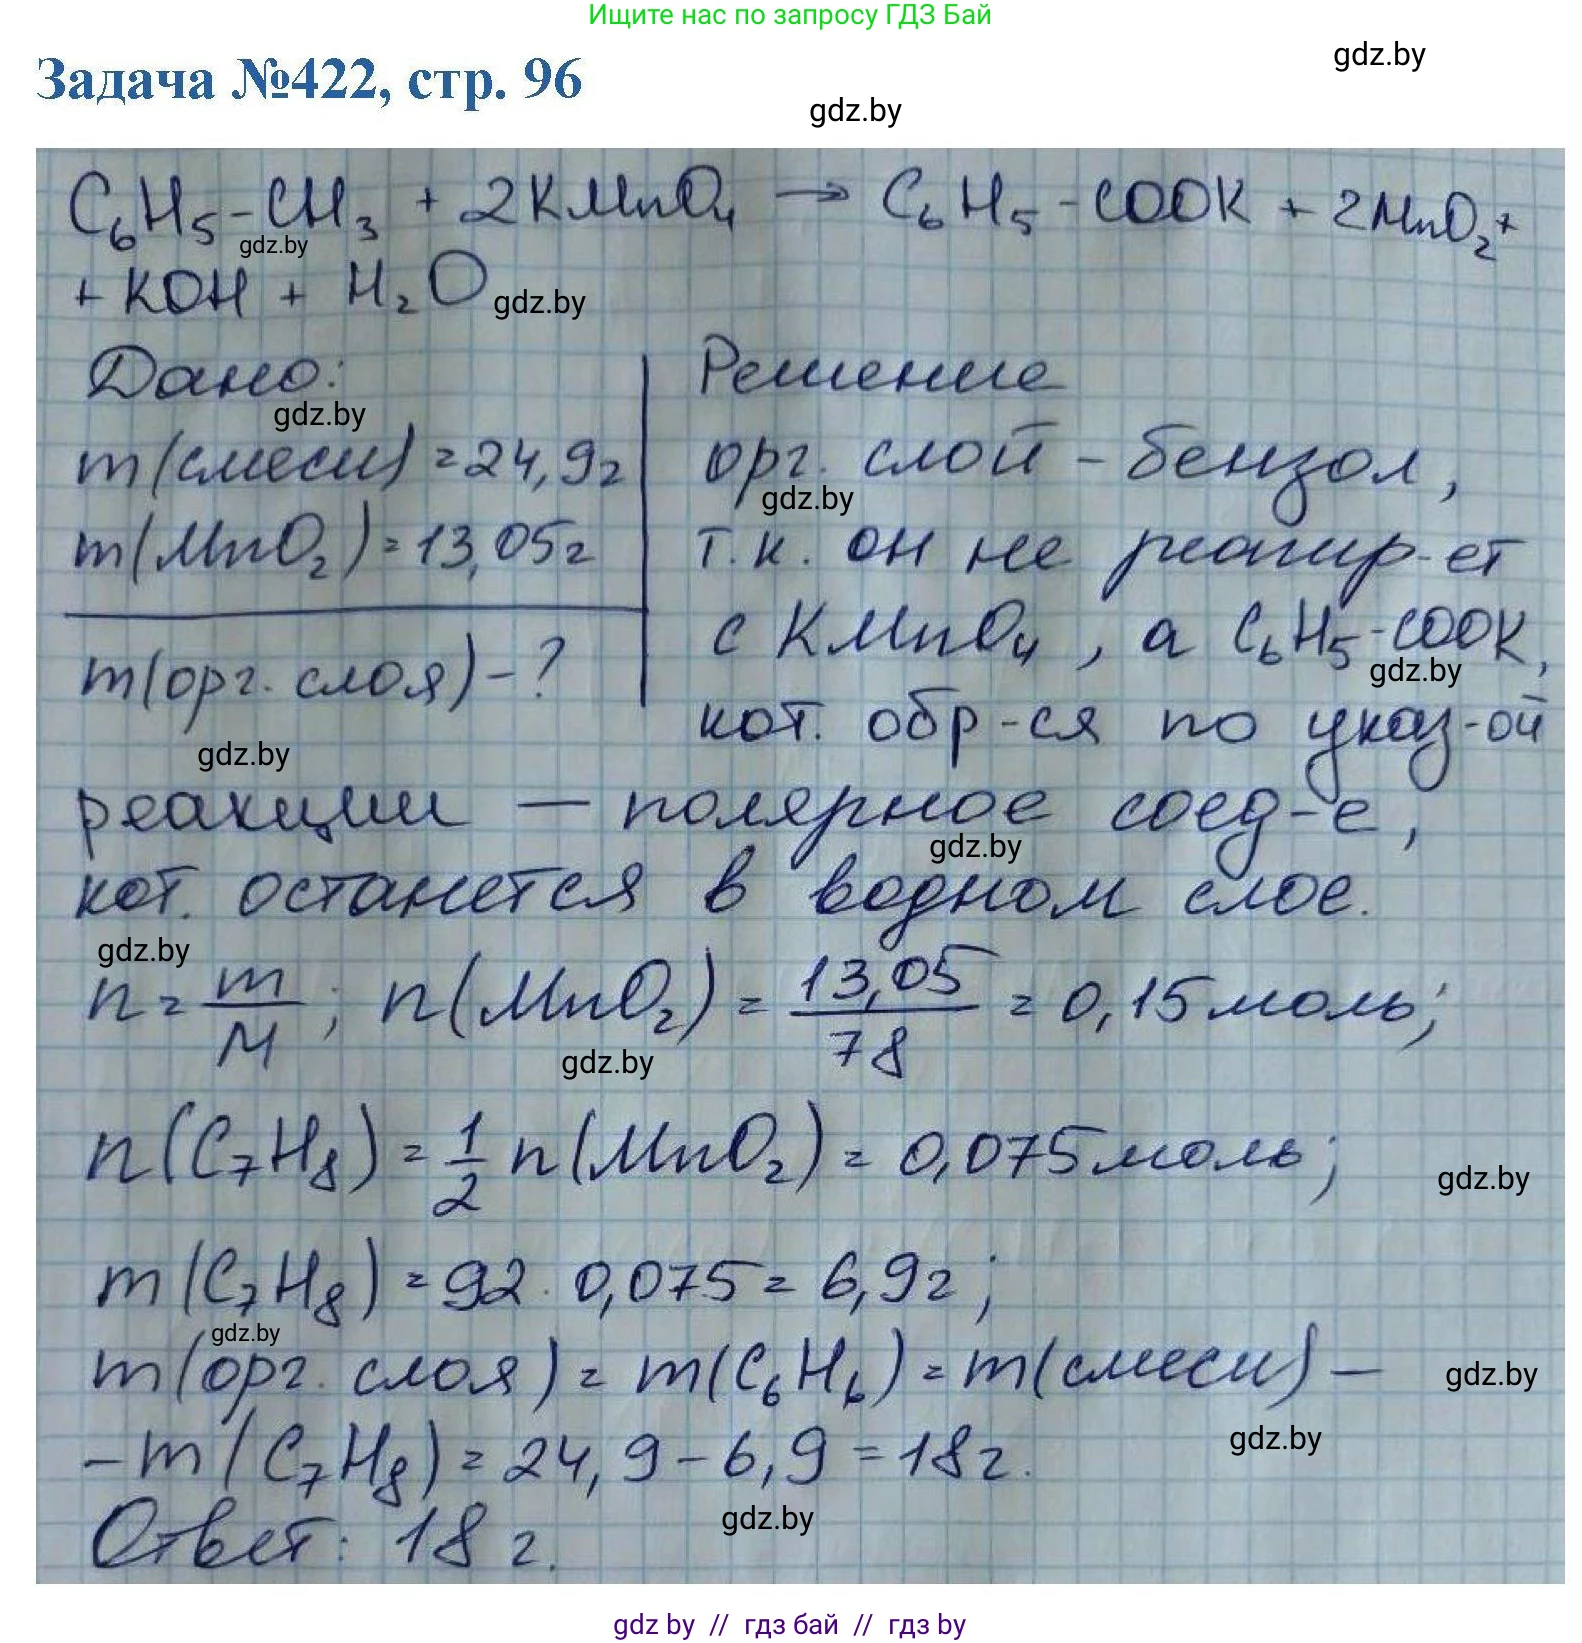 Ищите нас по запросу ГДЗ Бай
gdz.by
Задача №422, стр. 96
gdz.by
C₆H₅-CH₃ + 2KMnO₄ → C₆H₅-COOK + 2MnO₂ +
gdz.by
+ KOH + H₂O
gdz.by
Дано:
Решение
gdz.by
m(смеси) = 24,9г
орг. слой - бензол,
gdz.by
m(MnO₂) = 13,05г
т.к. он не реагир-ет
с KMnO₄, а C₆H₅-COOK,
gdz.by
m(орг. слоя) - ?
кот. обр-ся по указ-ой
gdz.by
реакции — полярное соед-е,
gdz.by
кот. останется в водном слое.
gdz.by
n = m/M; n(MnO₂) = 13,05/78 = 0,15 моль;
gdz.by
n(C₇H₈) = 1/2 n(MnO₂) = 0,075 моль;
gdz.by
m(C₇H₈) = 92 · 0,075 = 6,9г;
gdz.by
m(орг. слоя) = m(C₆H₆) = m(смеси) —
gdz.by
gdz.by
- m(C₇H₈) = 24,9 - 6,9 = 18г.
gdz.by
Ответ: 18 г.
gdz by // гдз бай // гдз by